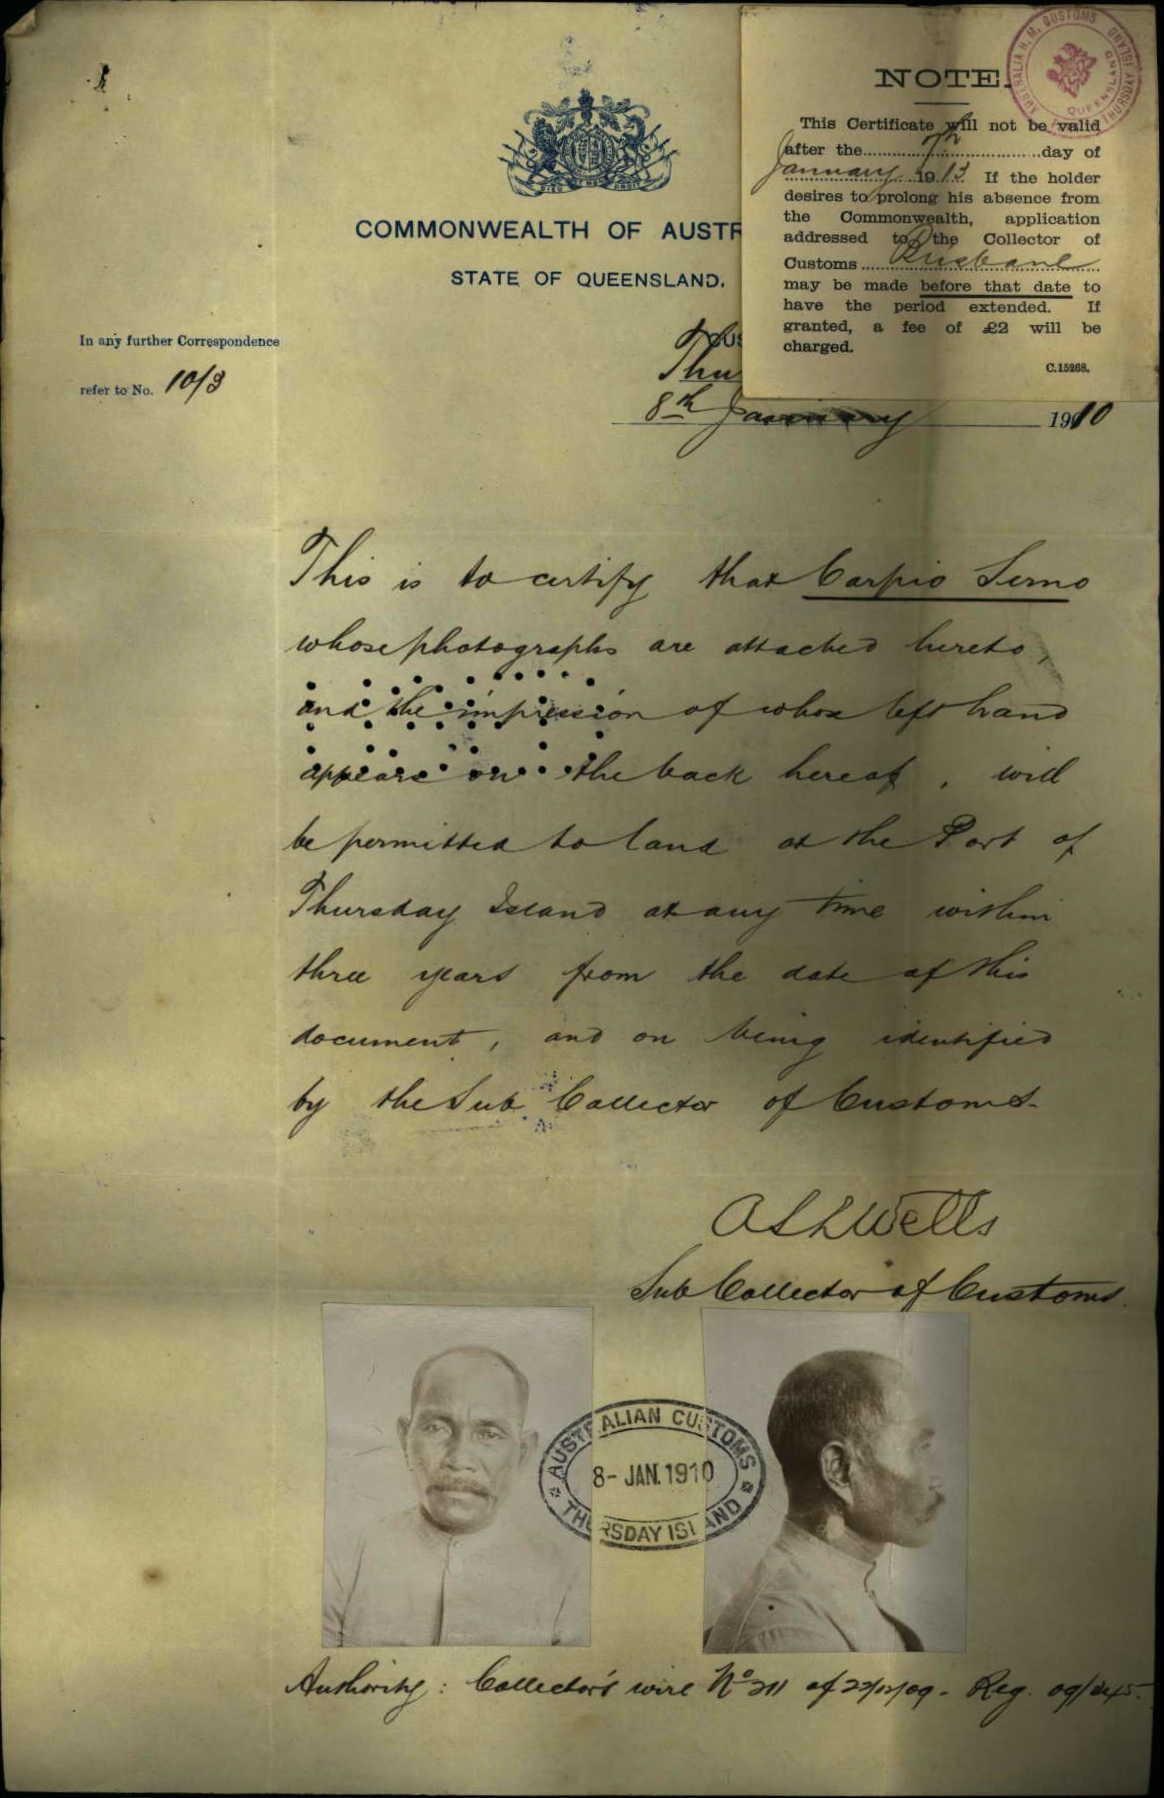 NOTE.
This Certificate will not be valid
after the 7th day of
January 1913 If the holder
desires to prolong his absence from
the Commonwealth, application
addressed to the Collector of
Customs Brisbane
may be made before that date to
have the period extended. If
granted, a fee of £2 will be
charged.
C.15268.
AUSTRALIA H.M. CUSTOMS
QUEENSLAND
THURSDAY ISLAND
COMMONWEALTH OF AUSTR
STATE OF QUEENSLAND.
In any further Correspondence
refer to No. 10/3
CUS
Thu
8th January 1910
This is to certify that Carpio Sermo
whose photographs are attached hereto,
and the impression of whose left hand
appears on the back hereof, will
be permitted to land at the Port of
Thursday Island at any time within
three years from the date of this
document, and on being identified
by the Sub Collector of Customs.
Wells
Sub Collector of Customs.
AUSTRALIAN CUSTOMS
8- JAN. 1910
THURSDAY ISLAND
Authority: Collector's wire No 211 of 22/12/09 - Reg. 09/